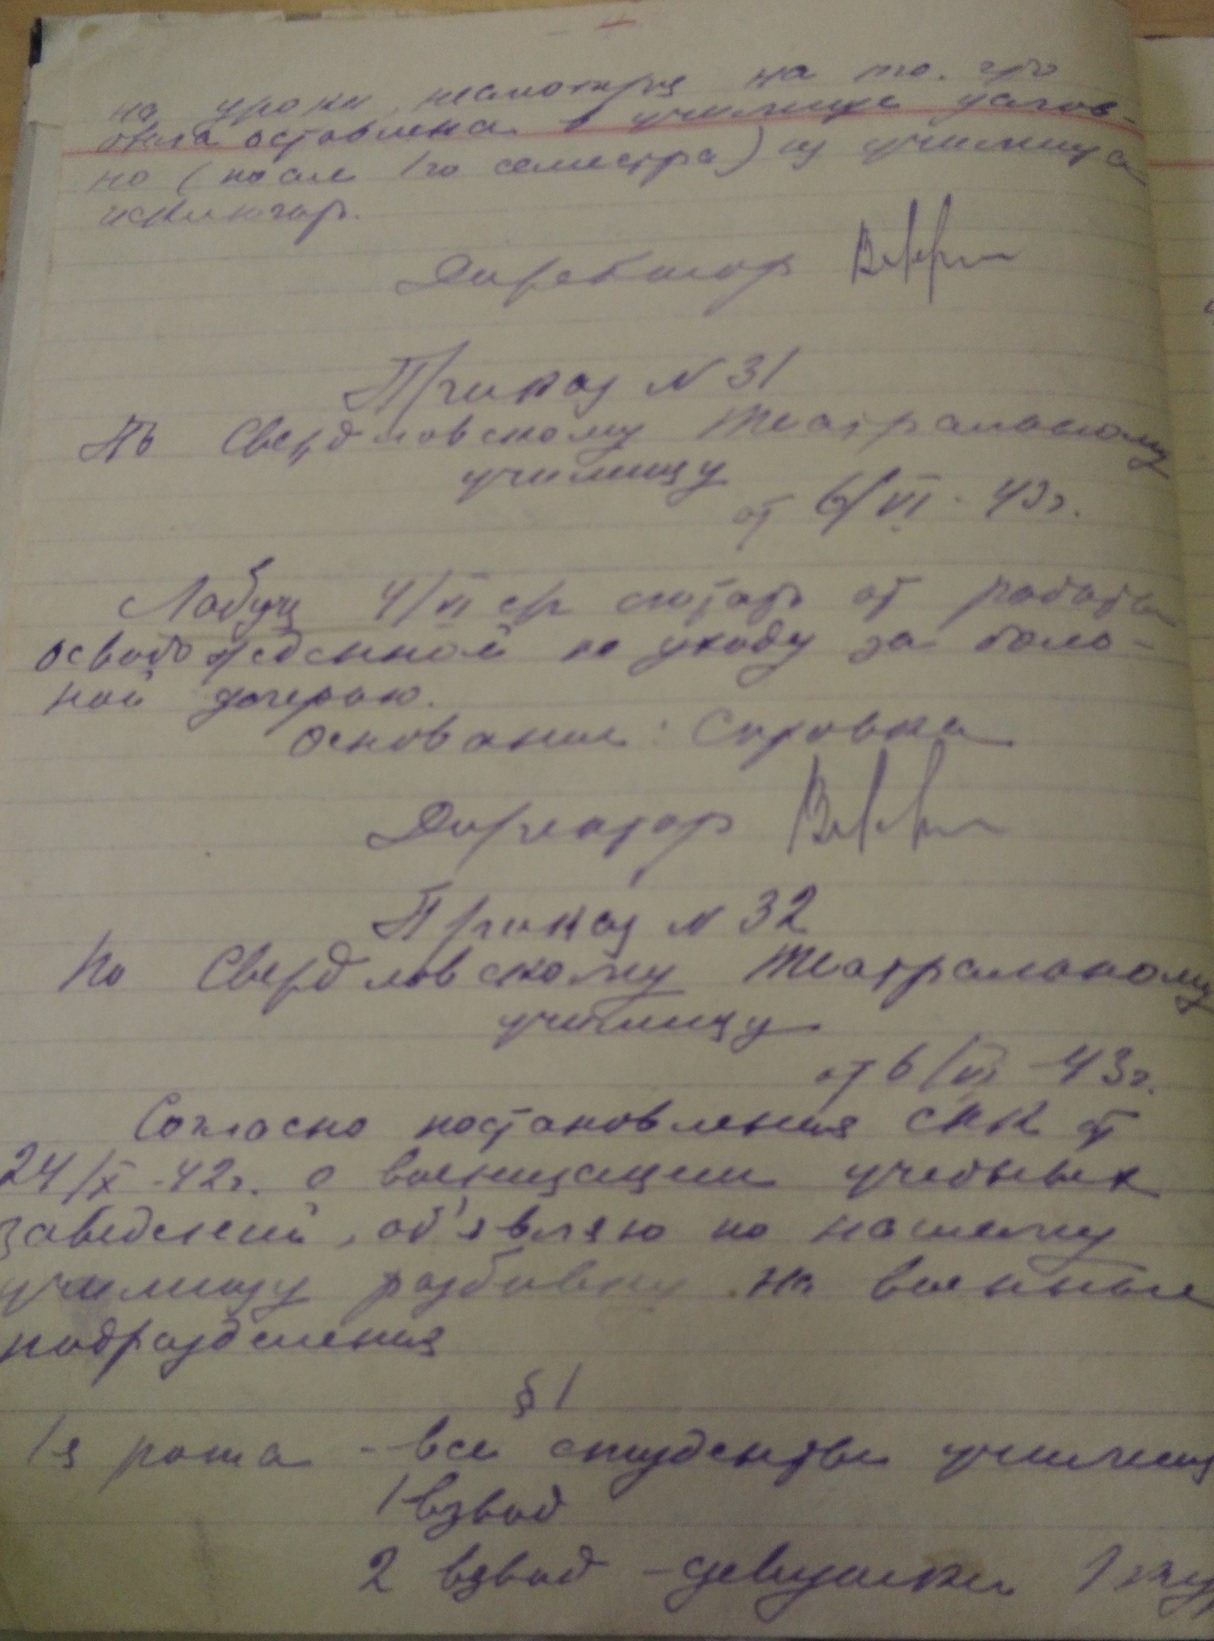 на уроки, несмотря на то, что
была оставлена в училище услов-
но (после 1го семестра) из училища
исключар.
Директор
Приказ N 31
По Свердловскому Театральному
училищу
от 6/VI - 43г.
Лабуць 4/VI с/г считать от работы
освобожденной по уходу за боль-
ной дочерью.
Основание: Справка
Директор
Приказ N 32
По Свердловскому Театральному
училищу
от 6/VI - 43г.
Согласно постановления СНК от
24/X - 42г. о военизации учебных
заведений, об'являю по нашему
училищу разбивку на военные
подразделения
§ 1
1я рота - все студенты училищ
1 взвод
2 взвод - девушки 1 кур